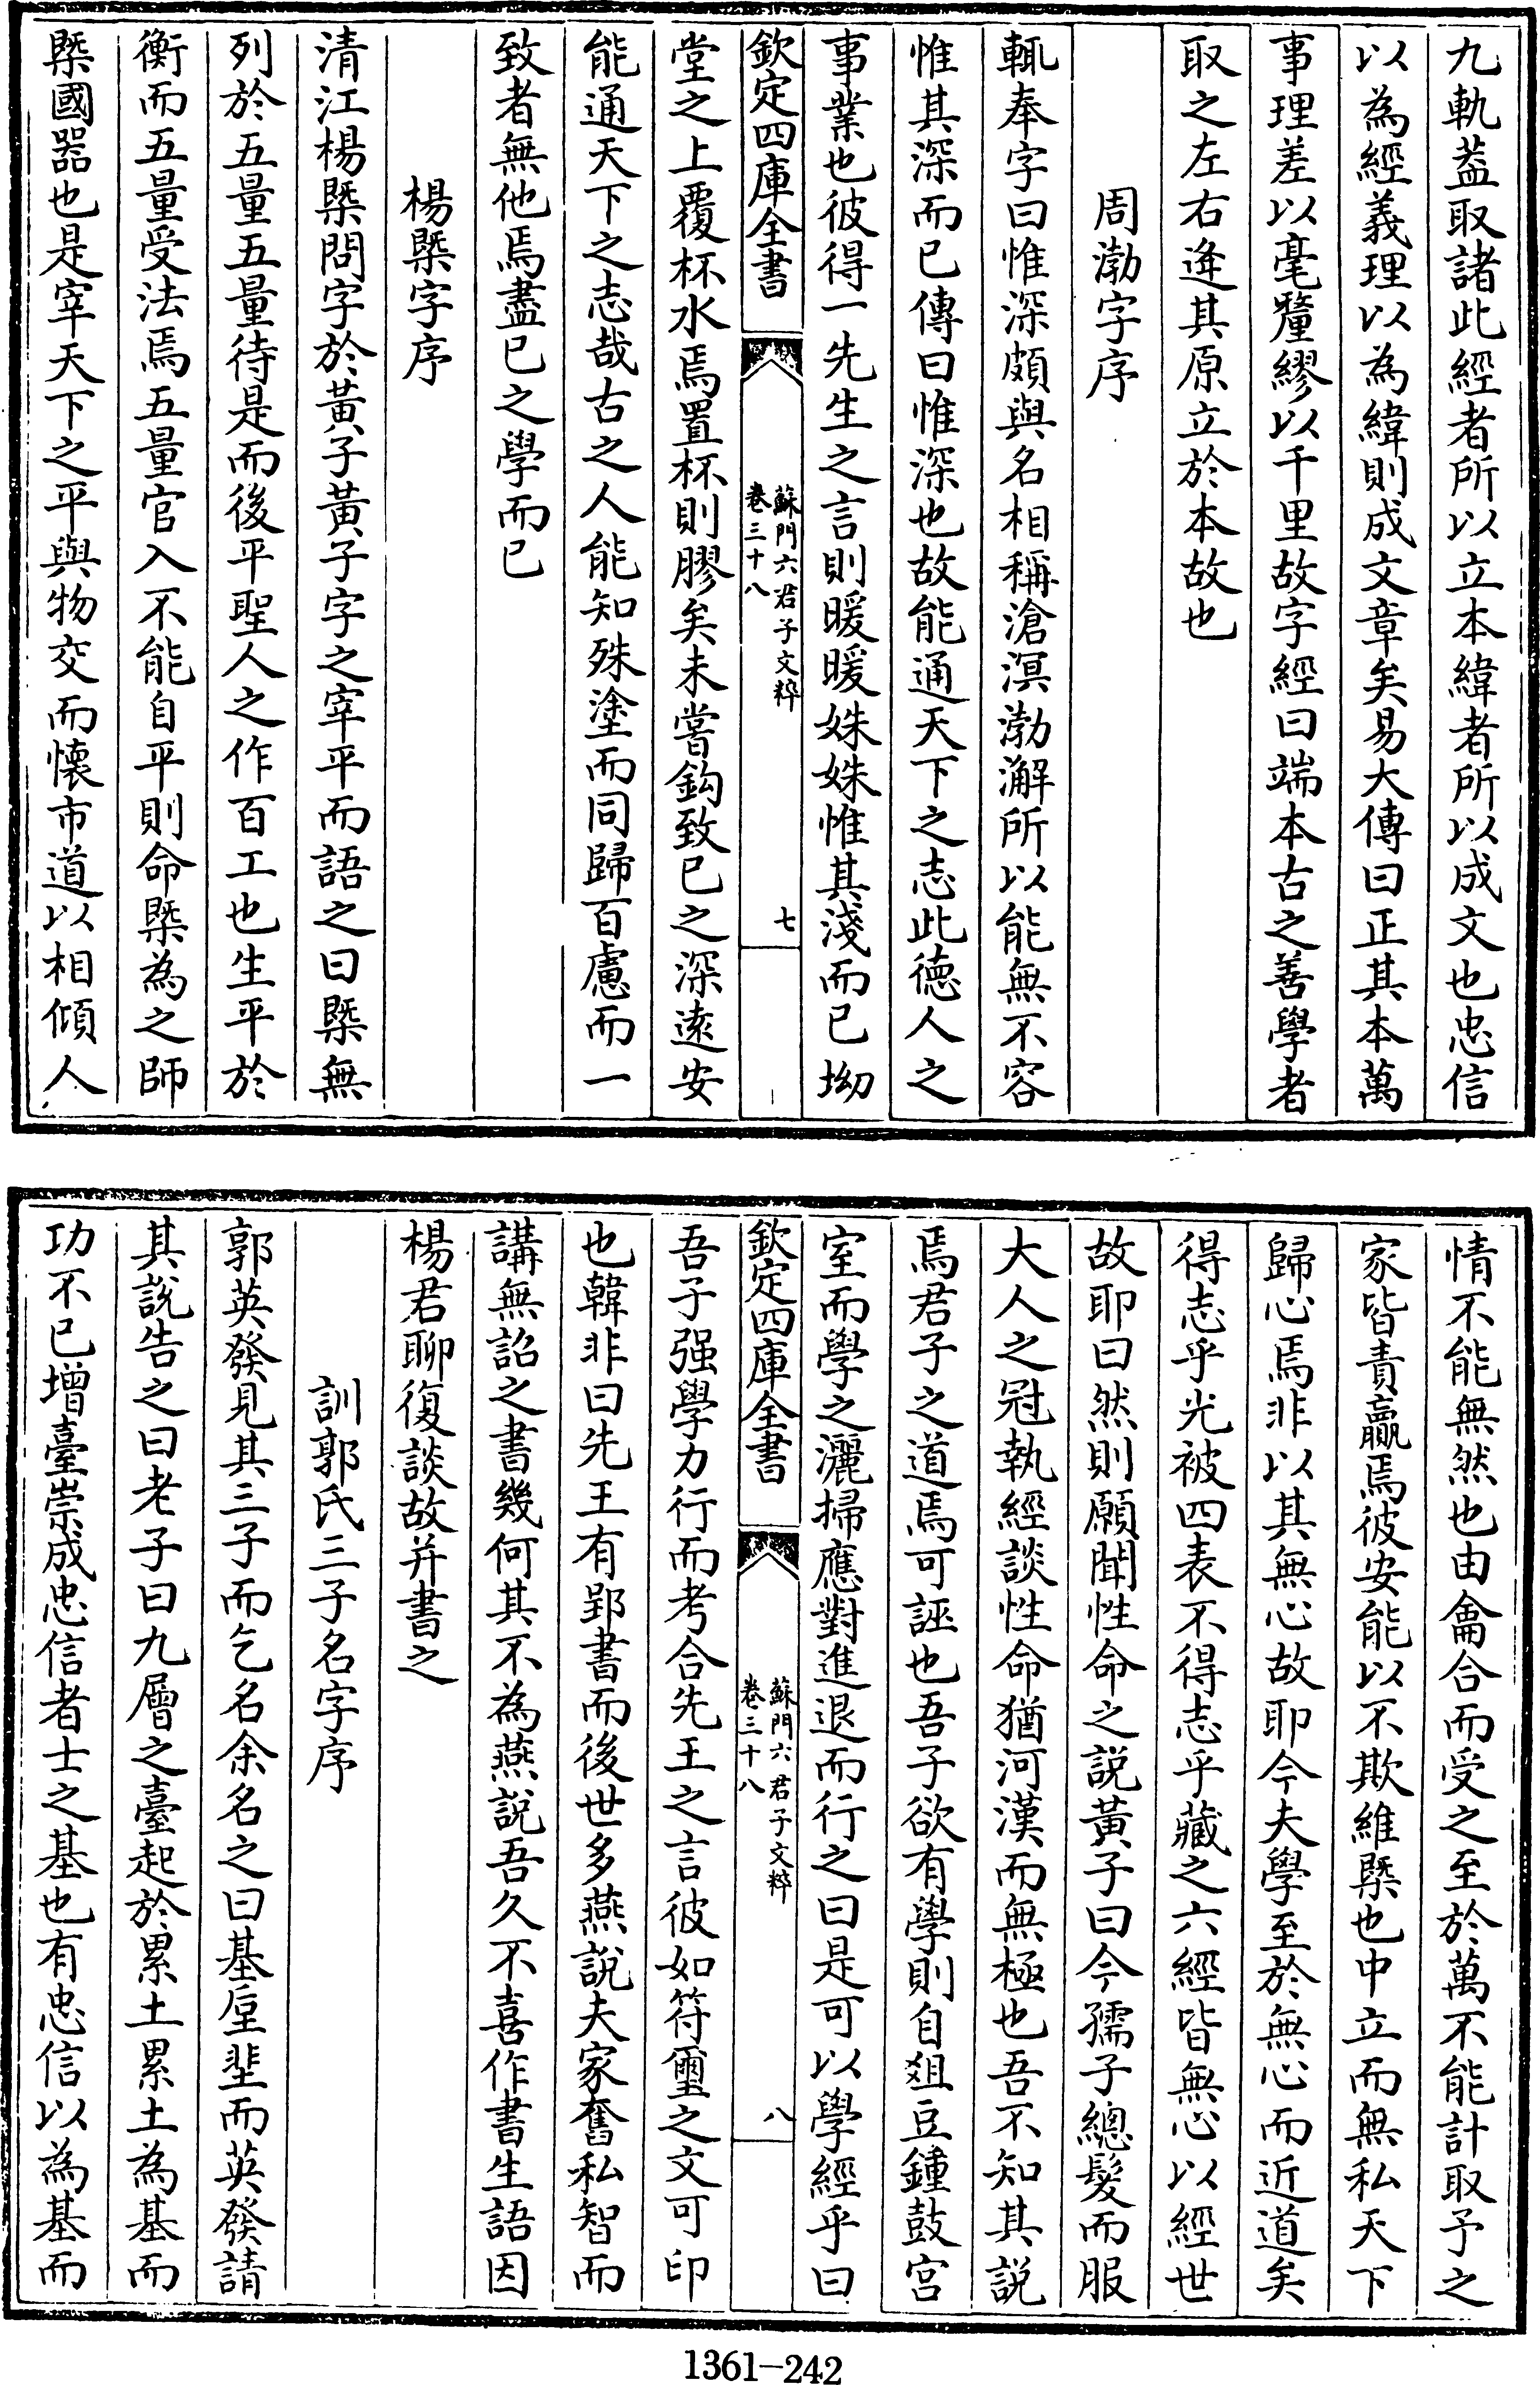 九軌蓋取諸此經者所以立本緯者所以成文也忠信
以為經義理以為緯則成文章矣易大傳曰正其本萬
事理差以毫釐繆以千里故字經曰端本古之善學者
取之左右逢其原立於本故也
周渤字序
輒奉字曰惟深頗與名相稱滄溟渤澥所以能無不容
惟其深而已傳曰惟深也故能通天下之志此德人之
事業也彼得一先生之言則暖暖姝姝惟其淺而已坳
欽定四庫全書
蘇門六君子文粹
卷三十八
七
堂之上覆杯水焉置杯則膠矣未嘗鈎致已之深遠安
能通天下之志哉古之人能知殊塗而同歸百慮而一
致者無他焉盡已之學而已
楊槩字序
清江楊槩問字於黃子黃子字之宰平而語之曰槩無
列於五量五量待是而後平聖人之作百工也生平於
衡而五量受法焉五量官入不能自平則命槩為之師
槩國器也是宰天下之平與物交而懷市道以相傾人
情不能無然也由龠合而受之至於萬不能計取予之
家皆責贏焉彼安能以不欺維槩也中立而無私天下
歸心焉非以其無心故耶今夫學至於無心而近道矣
得志乎光被四表不得志乎藏之六經皆無心以經世
故耶曰然則願聞性命之說黃子曰今孺子總髮而服
大人之冠執經談性命猶河漢而無極也吾不知其說
焉君子之道焉可誣也吾子欲有學則自俎豆鍾鼓宮
室而學之灑掃應對進退而行之曰是可以學經乎曰
欽定四庫全書
蘇門六君子文粹
卷三十八
八
吾子强學力行而考合先王之言彼如符璽之文可印
也韓非曰先王有郢書而後世多燕說夫家奮私智而
講無詔之書幾何其不為燕說吾久不喜作書生語因
楊君聊復談故并書之
訓郭氏三子名字序
郭英發見其三子而乞名余名之曰基垕堊而英發請
其說告之曰老子曰九層之臺起於累土累土為基而
功不已增臺崇成忠信者士之基也有忠信以為基而
1361-242